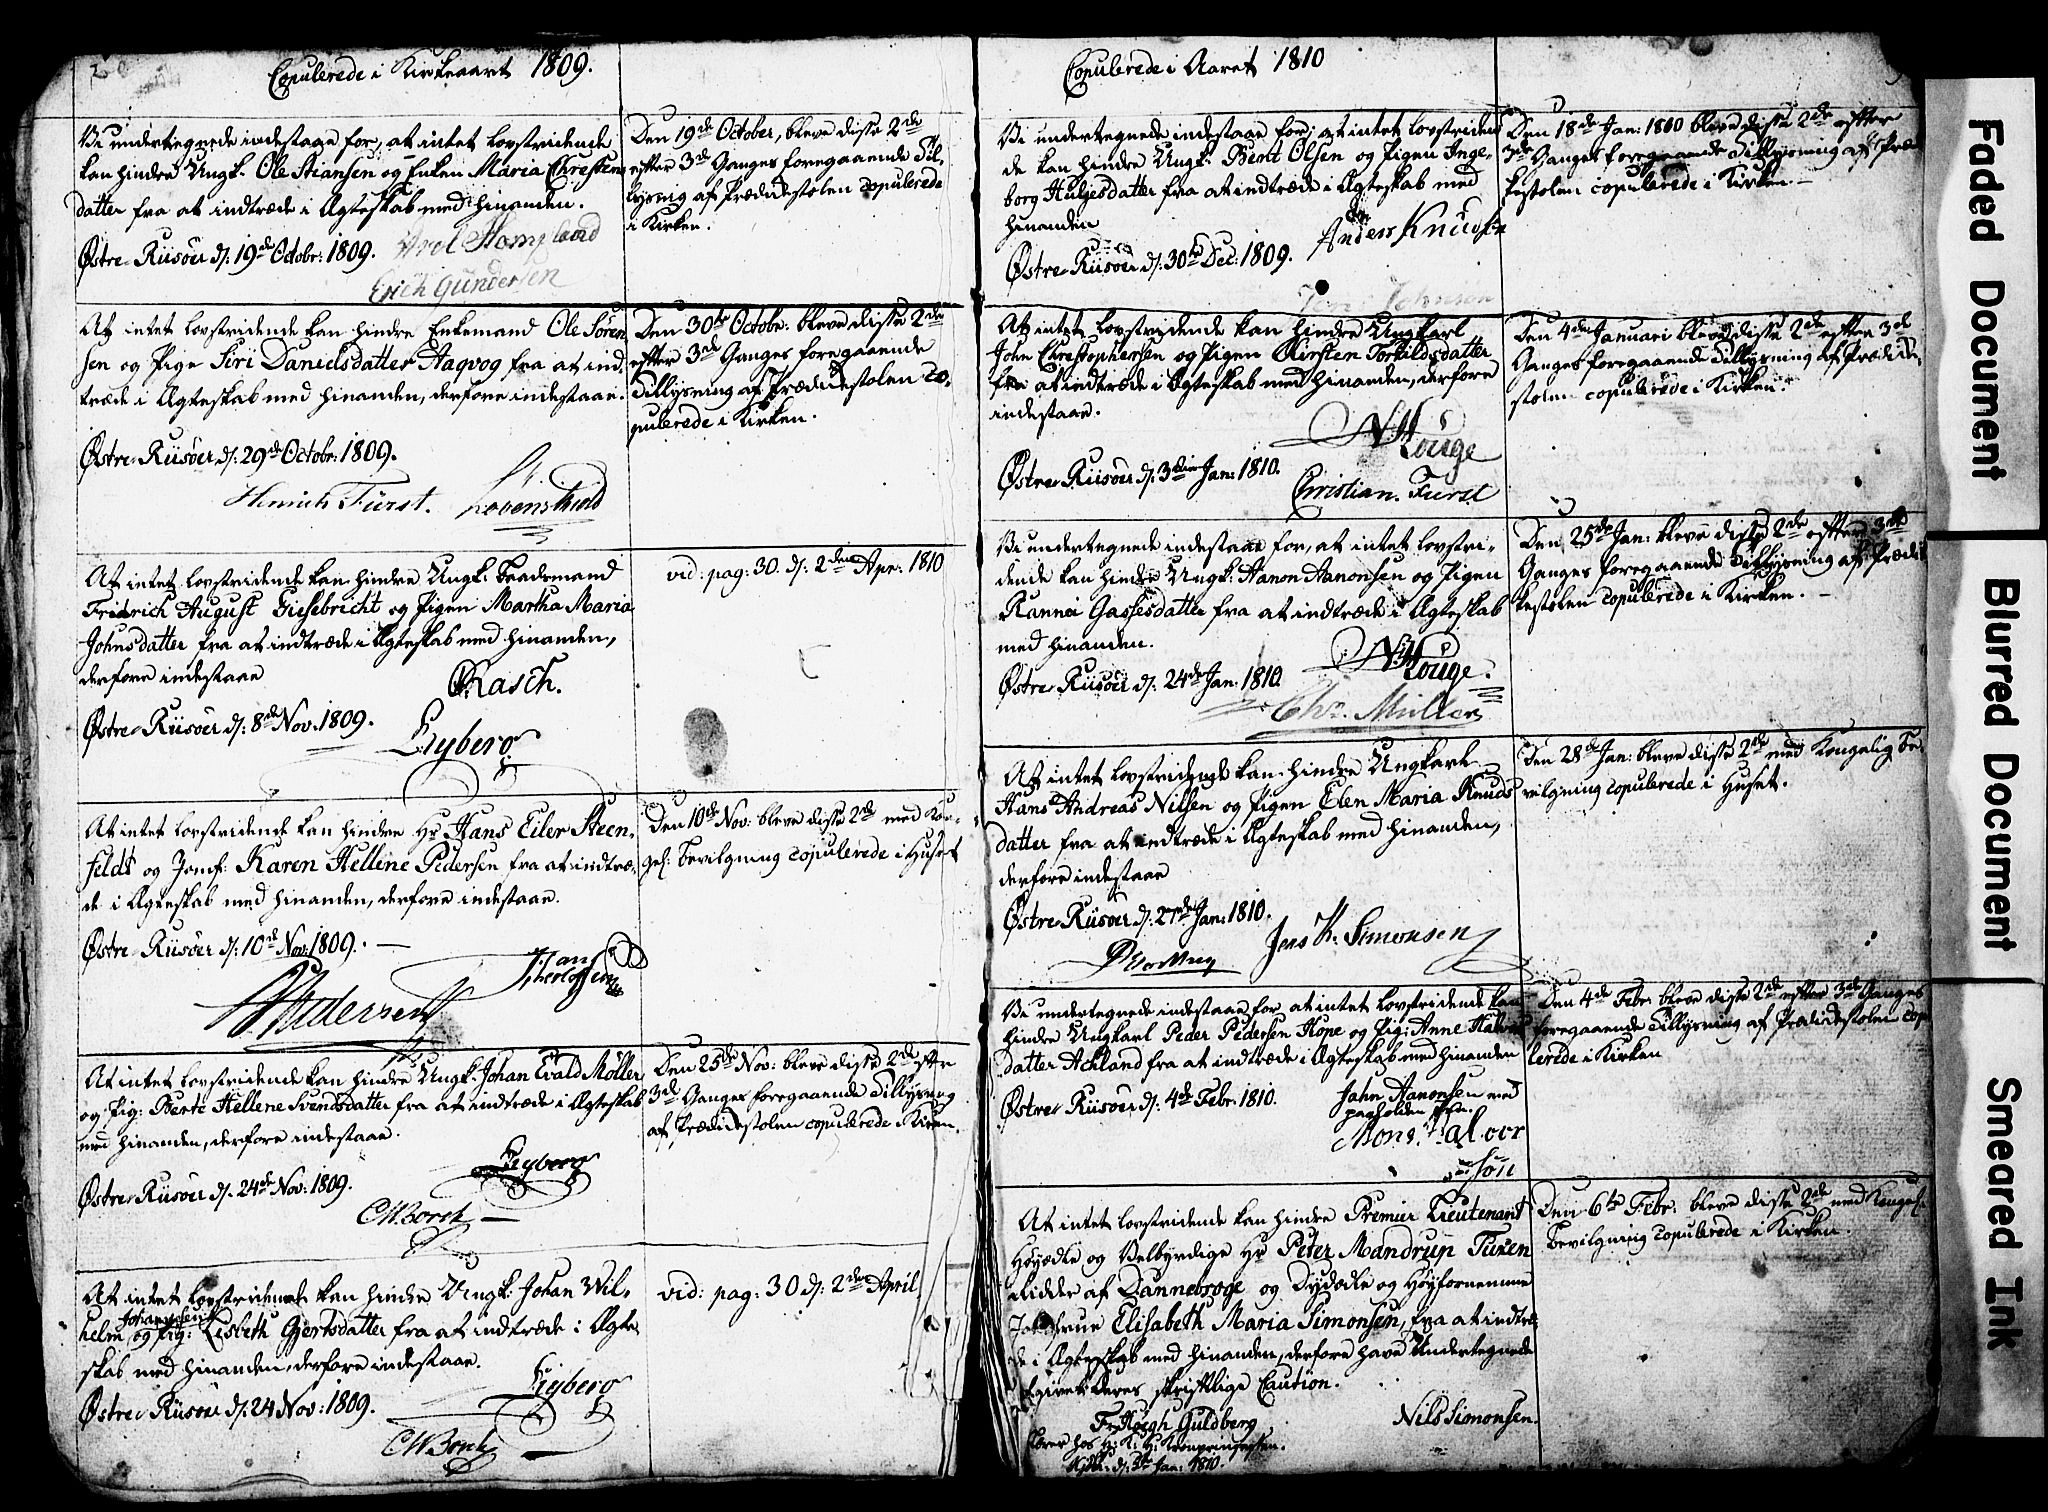 Copulerede i Kirkeaaret 1809.
Vi undertegnede indestaae for, at intet lovstridende
kan hindre Ungk. Ole Stiansen og Enken Maria Christens
datter fra at indtræde i Ægteskab med hinanden.
Østre-Riisöer d: 19de Octobr: 1809.
Erich Gundersen
Den 19de October, bleve disse 2de
efter 3de Ganges foregaaende Til-
lysning af Prædikestolen copulerede
i Kirken.
At intet lovstridende kan hindre Enkemand Ole Sören
sen og Pige Siri Danielsdatter Aaqvog fra at ind-
træde i Ægteskab med hinanden, derfore indestaae.
Østre-Riisöer d: 29de Octobr: 1809.
Hinrich Fürst. Lövenskiold
Den 30te Octobr: bleve disse 2de
efter 3de Ganges foregaaende
Tillysning af Prædikestolen co-
pulerede i Kirken.
At intet lovstridende kan hindre Ungk. Baadsmand
Fridrich August Giesebricht og Pigen Martha Maria
Johnsdatter fra at indtræde i Ægteskab med hinanden,
derfore indestaae
Rasch.
Østre-Riisöer d: 8de Nov: 1809.
Eyberg
vid: pag: 30. d: 2den Apr: 1810
At intet lovstridende kan hindre Hr Hans Eiler Steen-
feldt og Jomf: Karen Hellene Pedersen fra at indtræ-
de i Ægteskab med hinanden, derfore indestaae.
Østre-Riisöer d: 10de Nov: 1809.
Pedersen
Den 10de Nov: bleve disse 2de med Kon-
gel: Bevilgning copulerede i Huset
At intet lovstridende kan hindre Ungk: Johan Evald Möller
og Pig: Berte Hellene Svendsdatter fra at indtræde i Ægteskab
med hinanden, derfore indestaae.
Østre-Riisöer d. 24de Nov: 1809.
Eyberg
CWBorch
Den 25de Nov: bleve disse 2de eftr
3de Ganges foregaaende Tillysning
af Prædikestolen copulerede i Kirken.
At intet lovstridende kan hindre Ungk: Johan Wil-
Johannesen
helm og Pig: Lisbeth Gjertsdatter fra at indtræde i Ægte-
skab med hinanden, derfore indestaae.
Østre-Riisöer d: 24 Nov: 1809.
Eyberg
CWBorch
vid: pag: 30 d: 2den April
Copulerede i Aaret 1810
Vi undertegnede indestaae for, at intet lovstriden
de kan hindre Ungk: Bent Olsen og Pigen Inge-
borg Hulgesdatter fra at indtræde i Ægteskab med
hinanden
Anders Knudsen
Østre-Riisöer d: 30te Dec: 1809.
Jens Johnsen
Den 18de Jan: 1810 bleve disse 2de efter
3de Ganges foregaaende Tillysning af Præd
kestolen copulerede i Kirken
At intet lovstridende kan hindre Ungkarl
John Christophersen og Pigen Kirsten Torkildsdatter
fra at indtræde i Ægteskab med hinanden, derfore
indestaae.
Houge
Østre-Riisöer d: 3die Jan: 1810.
Christian Fürst
Den 4de Januari bleve disse 2de efter 3de
Ganges foregaaende Tillysning af Prædike
stolen copulerede i Kirken
Vi undertegnede indestaae for, at intet lovstri-
dende kan hindre Ungk. Aanon Aanonsen og Pigen
Rannei Gassesdatter fra at indtræde i Ægteskab
med hinanden.
Houge.
Østre-Riisöer d: 24de Jan: 1810.
Chr. Müller
Den 25de Jan: bleve disse 2de efter 3de
Ganges foregaaende Tillysning af Prædi
kestolen copulerede i Kirken.
At intet lovstridende kan hindre Ungkarl
Hans Andreas Nilsen og Pigen Elen Maria Knuds
datter fra at indtræde i Ægteskab med hinanden,
derfore indestaae
Østre-Riisöer d: 27de Jan: 1810.
Jens K. Simonsen
Den 28de Jan: bleve disse 2de med Kongelig Be-
vilgning copulerede i Huset.
Vi undertegnede indestaae for at intet lovstridende kan
hindre Ungkarl Peder Pedersen Hope og Pig: Anne Halvors
datter Achland fra at indtræde i Ægteskab med hinanden
Østre Riisöer d: 4de Febr: 1810.
Jahn Aanonsen med
paaholden Pen.
Mons Halvor
sön
Den 4de Febr: bleve disse 2de efter 3de Ganges
foregaaende Tillysning af Prædikestolen copu
lerede i Kirken
At intet lovstridende kan hindre Premier Lieutenant
Høyædle og Velbyrdige Hr Peter Mandrup Tuxen
Ridder af Dannebroge og Dydædle og Høyfornemme
Jomfrue Elisabeth Maria Simonsen, fra at indtræ-
de i Ægteskab med hinanden, derfore have Undertegnede
givet deres skriftlige Caution.
Fr. Høegh Guldberg
Nils Simonsen.
Lærer hos H: K: H: Kronprinsessen.
d: 3 Jan: 1810.
Den 6te Febr: bleve disse 2de med Kongel:
Bevilgning copulerede i Kirken
Faded Document
Blurred Document
Smeared Ink